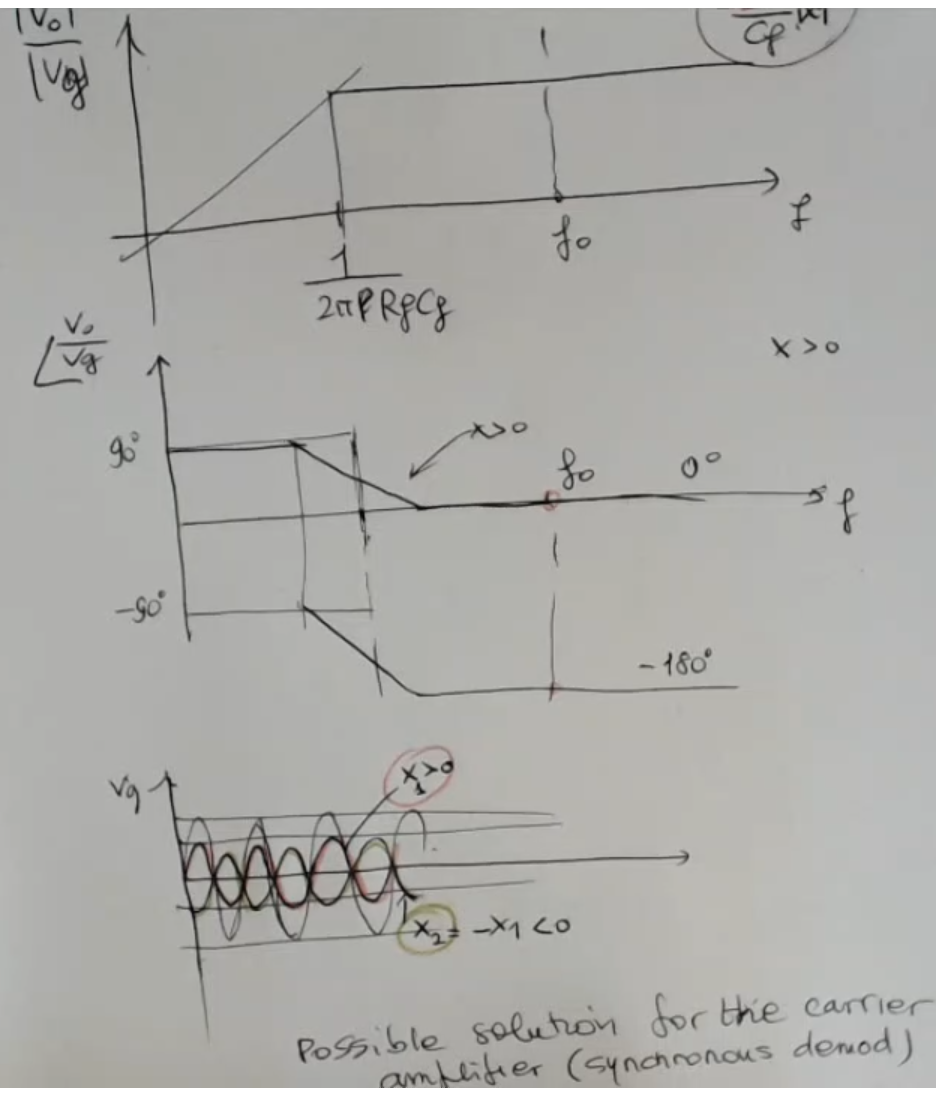 |Vo|
|Vg|
Cf |x|
f
fo
1
2πf RfCf
∠ Vo
Vg
x>0
90°
x>0
fo
0°
f
-90°
-180°
Vg
x1>0
x2=-x1<0
Possible solution for the carrier
amplifier (synchronous demod)